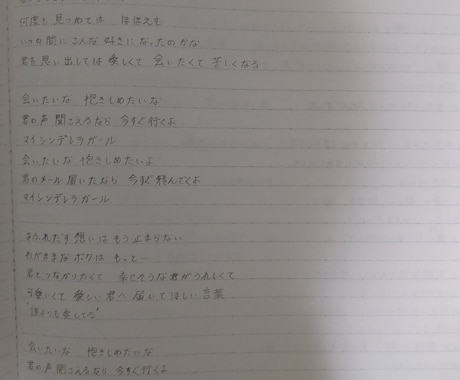 何度も見つめては ほほえむ
いつの間にこんな好きになったのかな
君を思い出しては愛しくて 会いたくて 苦しくなる
会いたいな 抱きしめたいな
君の声 聞こえるなら 今すぐ行くよ
マイシンデレラガール
会いたいな 抱きしめたいよ
君のメール届いたなら 今すぐ飛んでくよ
マイシンデレラガール
あふれだす想いはもう止まらない
わがままなボクは もって…
君とつながりたくて 幸せそうな君がうれしくて
可愛いくて 愛しい君へ 届いてほしい言葉
"誰よりも愛してる"
会いたいな 抱きしめたいな
君の声聞こえるなら 今すぐ行くよ